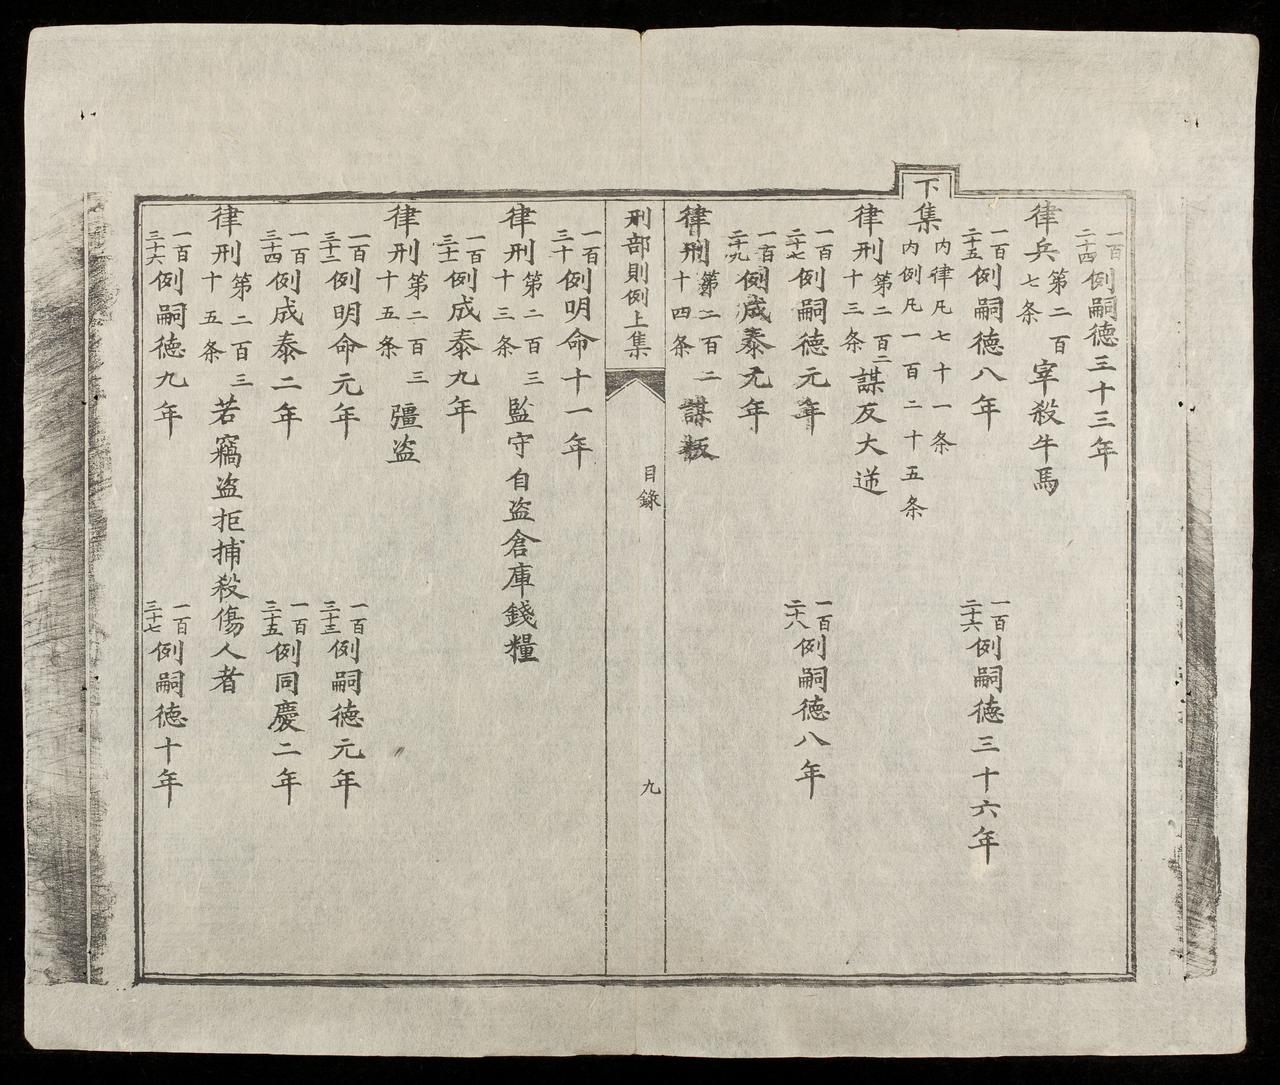 一百二十四例嗣徳三十三年
律兵第二百七条宰殺牛馬
一百二十五例嗣徳八年 一百二十六例嗣徳三十六年
下集内律凡七十一条内例凡一百二十五条
律刑第二百二十三条謀反大逆
一百二十七例嗣徳元年 一百二十八例嗣徳八年
一百二十九例成泰元年
律刑第二百二十四条謀叛
刑部則例上集 目錄 九
一百三十例明命十一年
律刑第二百三十三条監守自盗倉庫錢糧
一百三十一例成泰九年
律刑第二百三十五条彊盗
一百三十二例明命元年 一百三十三例嗣徳元年
一百三十四例成泰二年 一百三十五例同慶二年
律刑第二百三十五条若竊盗拒捕殺傷人者
一百三十六例嗣徳九年 一百三十七例嗣徳十年